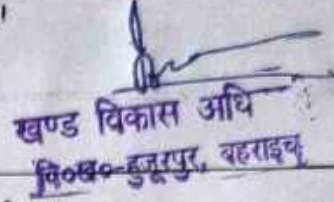 खण्ड विकास अधि
वि०ख०-हुजूरपुर, बहराइच